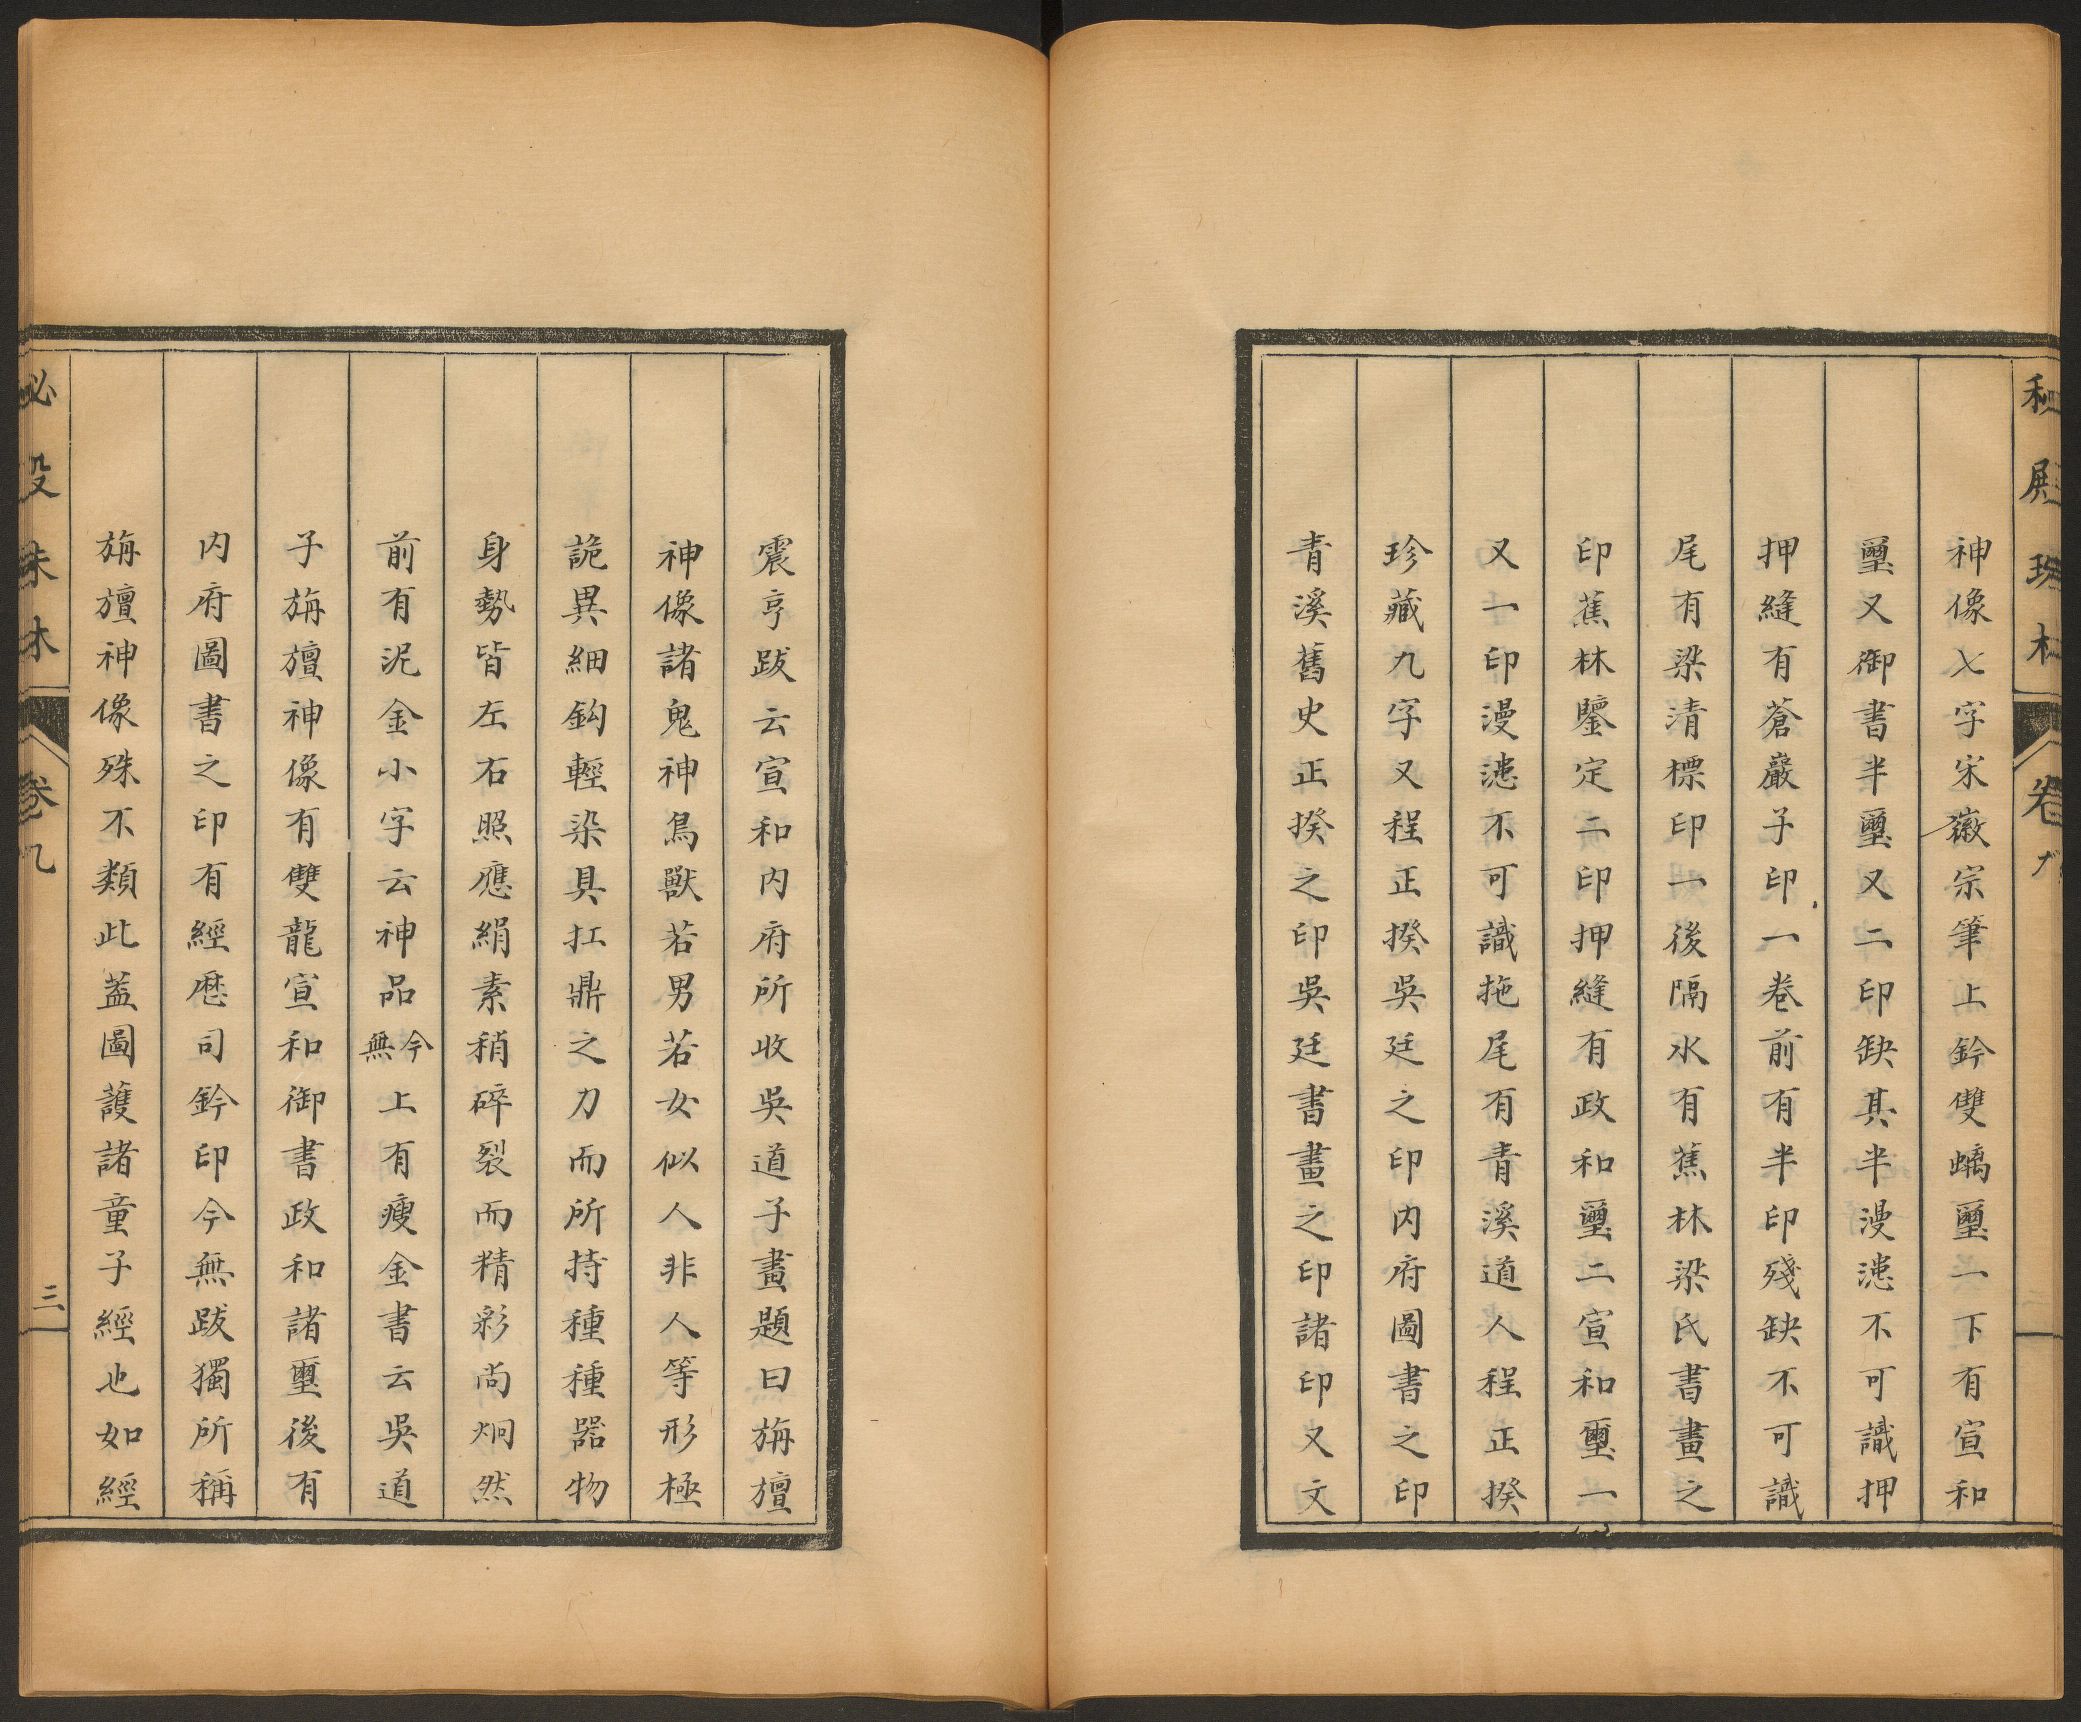 秘殿珠林 卷九
神像七字宋徽宗筆上鈐雙螭璽一下有宣和
璽又御書半璽又二印缺其半漫漶不可識押
押縫有蒼巖子印一卷前有半印殘缺不可識
尾有梁清標印一後隔水有蕉林梁氏書畫之
印蕉林鑒定二印押縫有政和璽二宣和璽一
又一印漫漶不可識拖尾有青溪道人程正揆
珍藏九字又程正揆吳廷之印內府圖書之印
青溪舊史正揆之印吳廷書畫之印諸印又文
震亨跋云宣和內府所收吳道子畫題曰旃檀
神像諸鬼神鳥獸若男若女似人非人等形極
詭異細鈎輕染具扛鼎之力而所持種種器物
身勢皆左右照應絹素稍碎裂而精彩尚炯然
前有泥金小字云神品今無上有瘦金書云吳道
子旃檀神像有雙龍宣和御書政和諸璽後有
內府圖書之印有經歷司鈐印今無跋獨所稱
旃檀神像殊不類此蓋圖護諸童子經也如經
秘殿珠林 卷九 三